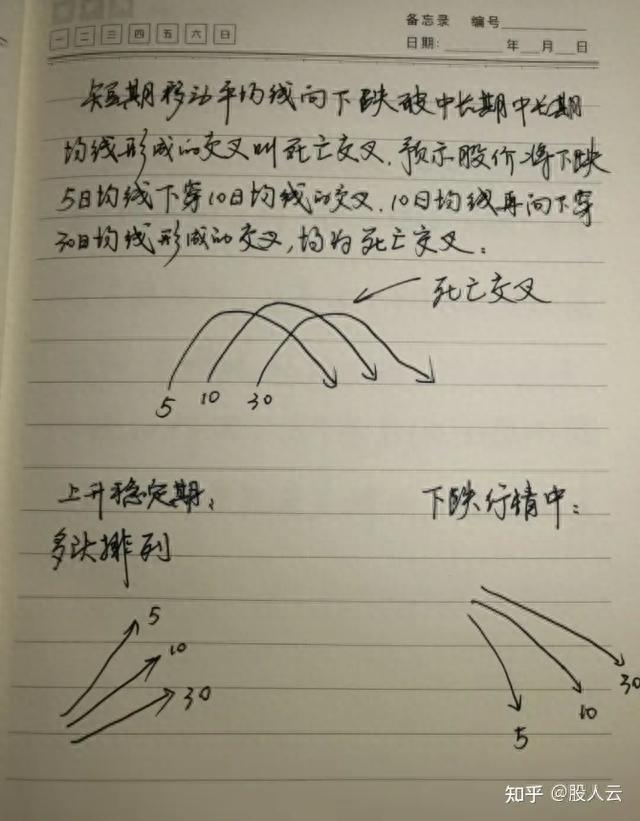 备忘录 编号
一 二 三 四 五 六 日
日期: 年 月 日
短期移动平均线向下跌破中长期中长期
均线形成的交叉叫死亡交叉.预示股价将下跌
5日均线下穿10日均线的交叉.10日均线再向下穿
30日均线形成的交叉,均为死亡交叉.
死亡交叉
5 10 30
上升稳定期、
多头排列
5
10
30
下跌行情中:
30
10
5
知乎 @股人云